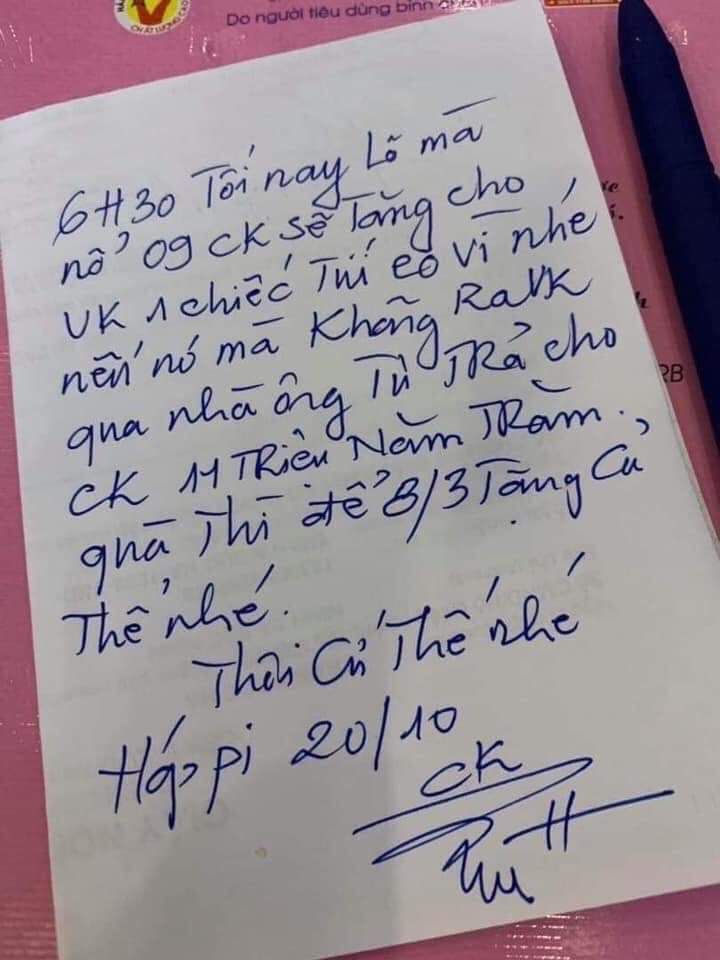 CHẤT LƯỢNG CAO
Do người tiêu dùng bình
6H30 Tối nay Lô mà
nổ 09 CK sẽ Tăng cho
VK 1 chiếc Túi eo vì nhé
nến nó mà Không Ra VK
qua nhà ông Tú TRả cho
CK 11 TRiệu Năm TRăm.
quà Thì để 8/3 Tăng Cụ
Thể nhé.
Thôi Cứ Thế nhé
Hấp pi 20/10
CK
RB